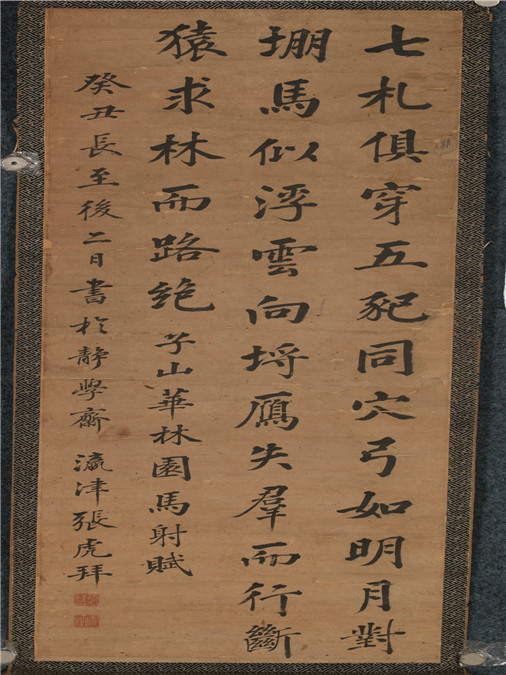 七札俱穿五豝同穴弓如明月對
堋馬似浮雲向埒鴈失羣而行斷
猿求林而路绝子山華林園馬射賦
癸丑長至後二日書於静學齋瀛津張虎拜